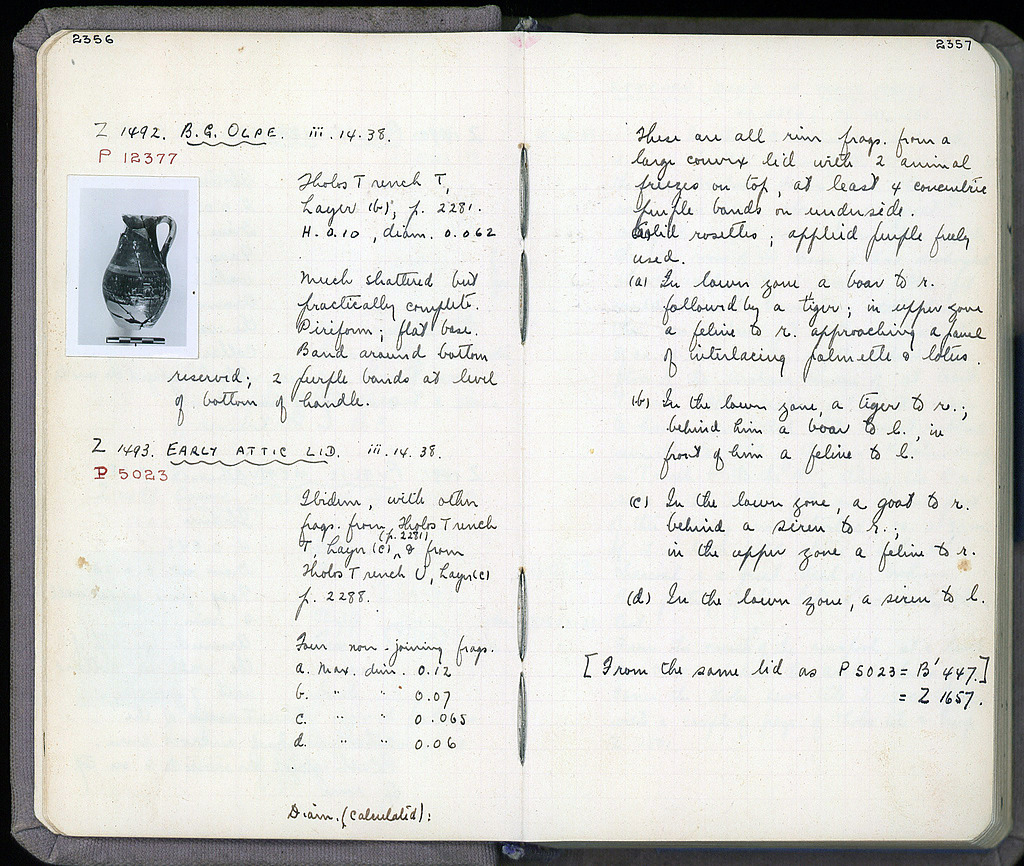 2356
Z 1492. B.G. OLPE. iii.14.38.
P 12377
Tholos Trench T,
Layer (b), p. 2281.
H. 0.10, diam. 0.062
Much shattered but
practically complete.
Piriform; flat base.
Band around bottom
reserved; 2 purple bands at level
of bottom of handle.
Z 1493. EARLY ATTIC LID. iii.14.38.
P 5023
Ibidem, with other
frags. from Tholos Trench
T, Layer (c) (p. 2281), & from
Tholos Trench U, Layer (c)
p. 2288.
Four non-joining frags.
a. Max. dim. 0.12
b. " " 0.07
c. " " 0.065
d. " " 0.06
Diam. (calculated):
2357
These are all rim frags. from a
large convex lid with 2 animal
friezes on top, at least 4 concentric
purple bands on underside.
Solid rosettes; applied purple freely
used.
(a) In lower zone a boar to r.
followed by a tiger; in upper zone
a feline to r. approaching a panel
of interlacing palmette & lotus.
(b) In the lower zone, a tiger to r.;
behind him a boar to l., in
front of him a feline to l.
(c) In the lower zone, a goat to r.
behind a siren to r.;
in the upper zone a feline to r.
(d) In the lower zone, a siren to l.
[From the same lid as P 5023 = B' 447.]
= Z 1657.